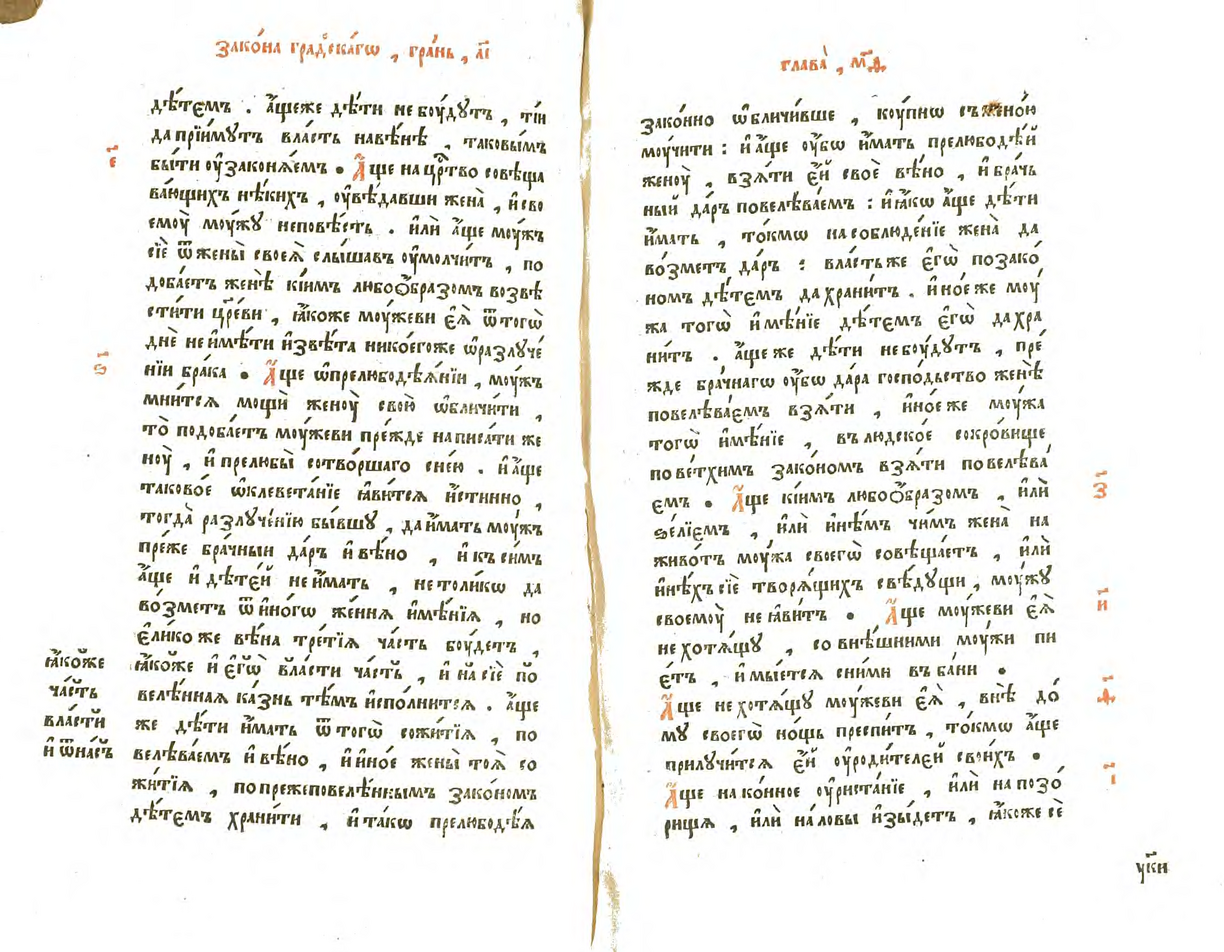 зако́на град́скагѡ , гра́нь , а҃і
дѣ́темъ . а҆́щеже дѣ́ти не бꙋ́дꙋтъ , ті́и
да прїи́мꙋтъ вла́сть на вѣ́нѣ , таковы́мъ
е҃
бы́ти ᲂу҆законѧ́емъ • А҆́ще на црⷭ҇тво совѣща
ва́ющихъ нѣ́кихъ , ᲂу҆вѣ́давши жена̀ , и҆ сво
емоу̀ моу́жꙋ неповѣ́сть . и҆лѝ а҆́ще моу́жъ
сїѐ ѿ жены̀ своеѧ̀ слы́шавъ ᲂу҆молчи́тъ , по
доба́етъ женѣ̀ кі́имъ любоѻ҆́бразомъ возвѣ
сти́ти цр҃еви , ꙗ҆́коже моу́жеви е҆ѧ̀ ѿ тогѡ̀
днѐ не и҆мѣ́ти и҆звѣ́та никоегоже ѡ҆разлꙋче́
ѕ҃
нїи бра́ка • А҆́ще ѡ҆прелюбодѣѧ́нїи , моу́жъ
мни́тсѧ мощѝ женоу̀ свою̀ ѡ҆бличи́ти ,
то̀ подоба́етъ моу́жеви пре́жде написа́ти же
ноу̀ , и҆ прелюбы̀ сотво́ршаго с не́ю . и҆ а҆́ще
таково́е ѡ҆клевета́нїе ꙗ҆ви́тсѧ и҆́стинно ,
тогда̀ разлꙋче́нїю бы́вшꙋ , да и҆́мать моу́жъ
пре́же бра́чныи да́ръ и҆ вѣ́но , и҆ къ си́мъ
а҆́ще и҆ дѣте́й не и҆́мать , не толи́кѡ да
во́зметъ ѿ и҆но́гѡ же́ннѧ и҆мѣ́нїѧ , но
е҆ли́ко же вѣ́на тре́тїѧ ча́сть боу́детъ ,
ꙗ҆́коже и҆ є҆гѡ̀ вла́сти ча́сть , и҆ на сїѐ по
велѣ́нная ка́знь тѣ́мъ и҆спо́лнитсѧ . а҆́ще
же дѣ́ти и҆́мать ѿ тогѡ̀ сожи́тїѧ , по
велѣва́емъ и҆ вѣ́но , и҆ и҆но́е жены̀ тоѧ̀ со
жи́тїѧ , по прежеповелѣ́ннымъ зако́номъ
дѣ́темъ храни́ти , и҆ та́кѡ прелюбодѣ́ѧ
ꙗ҆́коже
ча́сть
вла́сти
и҆ ѿна́съ
глава̀ , м҃д
зако́нно ѡ҆бличи́вше , коу́пнѡ съ жено́ю
моучи́ти : и҆ а҆́ще ᲂу҆́бѡ и҆́мать прелюбодѣ́й
женоу̀ , взѧ́ти е҆́й своѐ вѣ́но , и҆ бра́чь
ный да́ръ повелѣва́емъ : и҆ ꙗ҆́кѡ а҆́ще дѣ́ти
и҆́мать , то́кмѡ на соблюде́нїе жена̀ да
во́зметъ да́ръ : вла́сть же є҆гѡ̀ по зако́
номъ дѣ́темъ да храни́тъ . и҆но́е же моу́
жа тогѡ̀ и҆мѣ́нїе дѣ́темъ є҆гѡ̀ да хра
ни́тъ . а҆́ще же дѣ́ти не боу́дꙋтъ , пре́
жде бра́чнагѡ ᲂу҆́бо да́ра госпо́дьство женѣ̀
повелѣва́емъ взѧ́ти , и҆но́е же моу́жа
тогѡ̀ и҆мѣ́нїе , въ людско́е сокро́вище
по ве́тхимъ зако́номъ взѧ́ти повелѣва́
з҃
емъ • А҆́ще кі́имъ любоѻ҆́бразомъ , и҆лѝ
ѕе́лїемъ , и҆лѝ и҆нѣ́мъ чи́мъ жена̀ на
живо́тъ моу́жа своегѡ̀ совѣща́етъ , и҆лѝ
и҆нѣ́хъ сїѐ творѧ́щихъ свѣ́дꙋщи , моу́жꙋ
и҃
своемоу̀ не ꙗ҆ви́тъ • А҆́ще моу́жеви е҆ѧ̀
не хотѧ́щꙋ , со внѣ́шними моу́жи пи
е́тъ , и҆ мы́етсѧ сни́ми въ ба́ни •
ѳ҃
А҆́ще не хотѧ́щꙋ моу́жеви е҆ѧ̀ , внѣ̀ до́
мꙋ своегѡ̀ но́щь преспи́тъ , то́кмѡ а҆́ще
прилꙋчи́тсѧ е҆́й ᲂу҆роди́телей свои́хъ •
і҃
А҆́ще на ко́нное ᲂу҆риста́нїе , и҆лѝ на позо́
рища , и҆лѝ на ловы̀ и҆зы́детъ , ꙗ҆́коже се́
ꙋ҆́ки